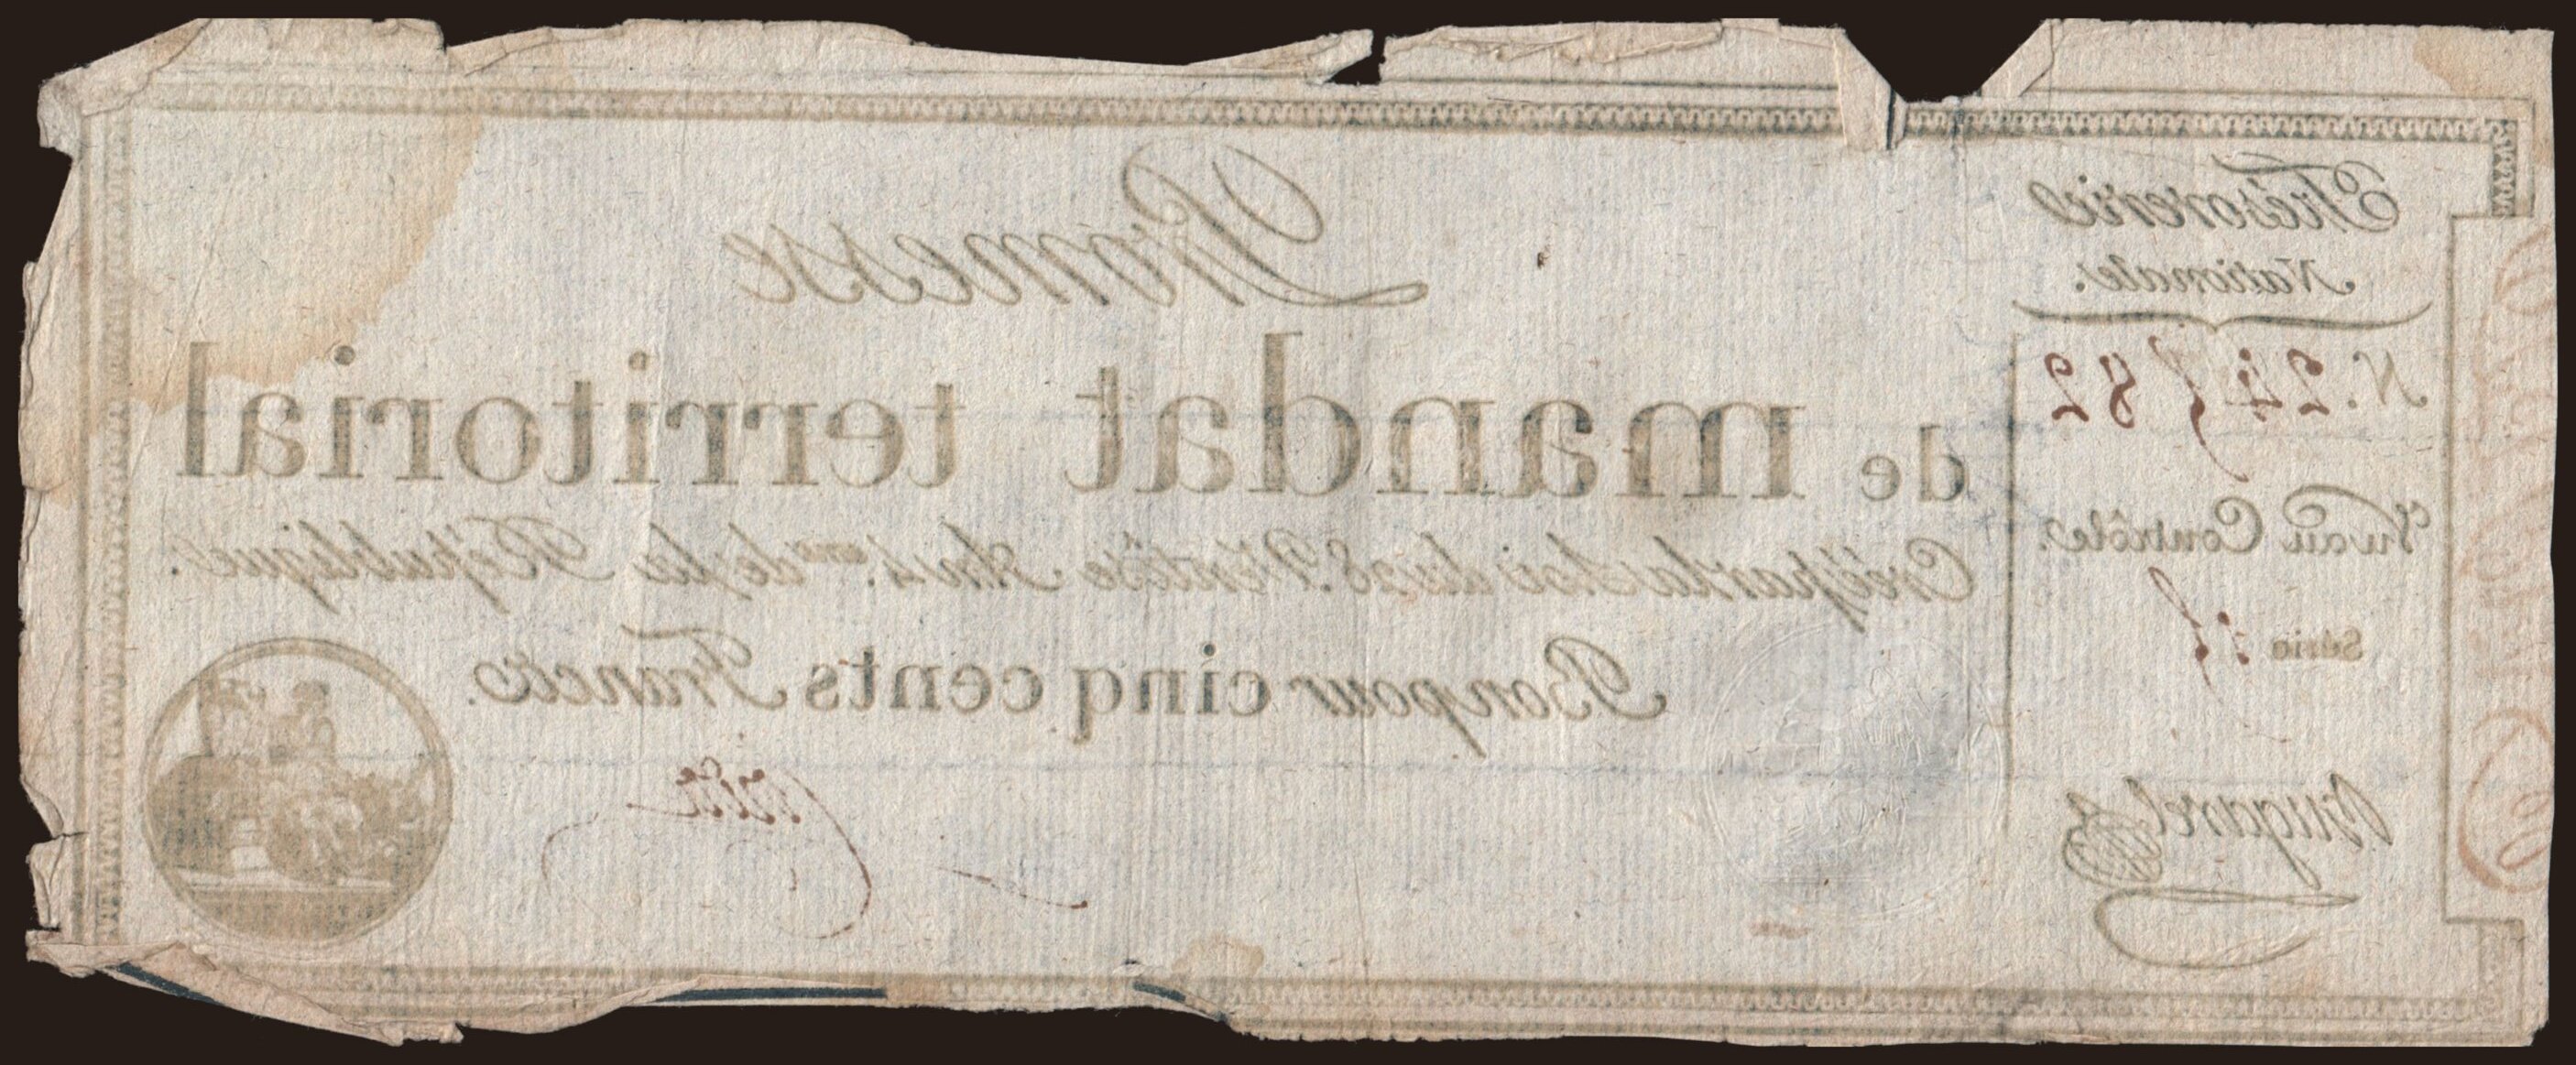 Trésorerie
Nationale.
N.
Vu au Contrôle.
Série
Promesse
de mandat territorial
Créé par la Loi du 28. Ventôse An 4.me de la République.
Bon pour cinq cents Francs.